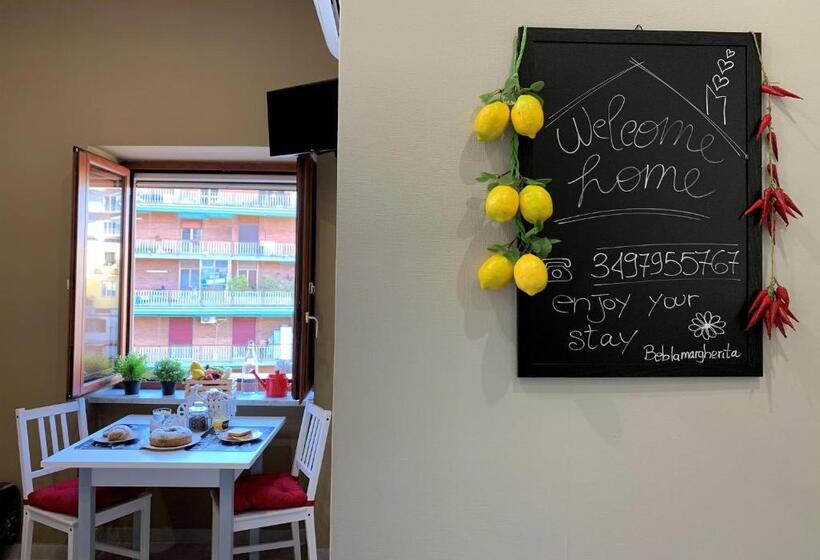 Welcome
home
3497955767
enjoy your
stay
Beblamargherita